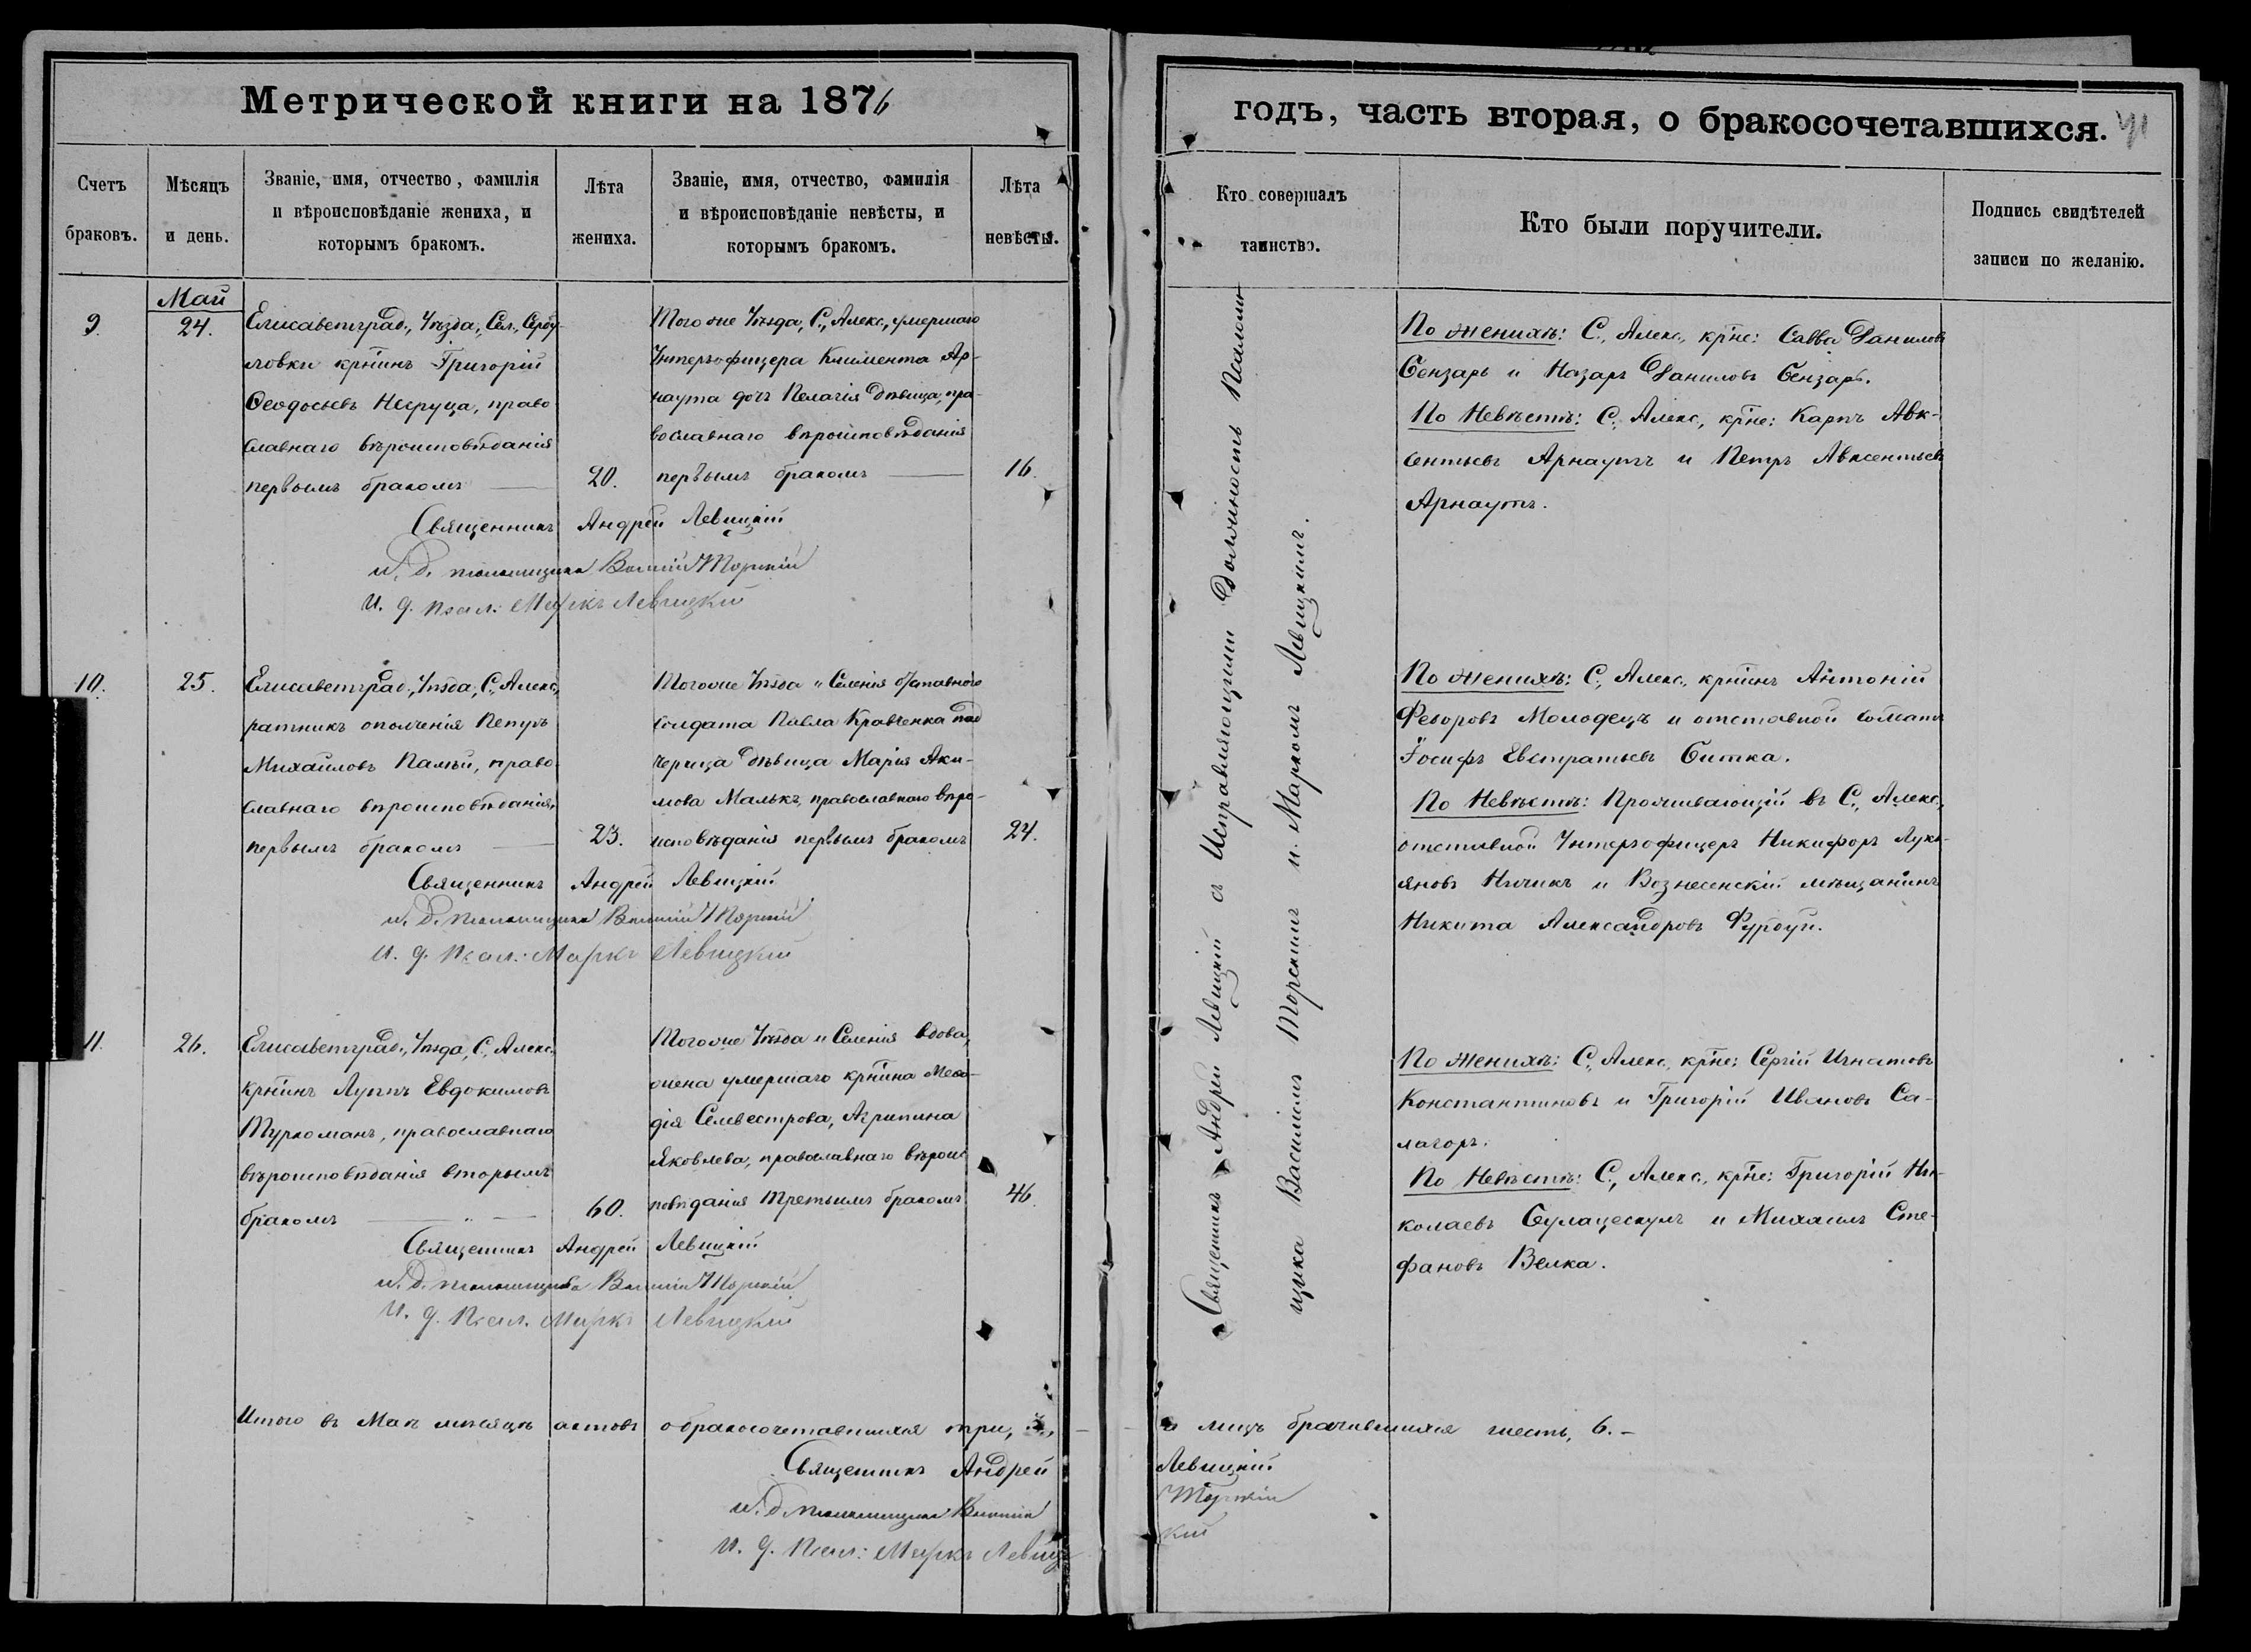 Метрической книги на 1876
Счетъ браковъ.
Мѣсяцъ и день.
Званіе, имя, отчество, фамилія
и вѣроисповѣданіе жениха, и
которымъ бракомъ.
Лѣта жениха.
Званіе, имя, отчество, фамилія
и вѣроисповѣданіе невѣсты, и
которымъ бракомъ.
Лѣта невѣсты.
Май
9.
24.
Елисаветград., Уѣзда, Сел.,
ловки крнинъ Григорій
Ѳеодосьевъ Негруца, право
славнаго вѣроисповѣданія
первымъ бракомъ
20.
Того же Уѣзда, С., Алекс., умершаго
Унтеръофицера Климента Ар-
наута дочь Пелагія дѣвица, пра-
вославнаго вѣроисповѣданія
первымъ бракомъ
16.
Священникъ Андрей Левицкій
и. д. псаломщика Василій Торскій
И. д. псал: Маркъ Левицкій
10.
25.
Елисаветград., Уѣзда, С., Алекс.,
ратникъ ополченія Петръ
Михайловъ Палій, право
славнаго вѣроисповѣданія,
первымъ бракомъ
23.
Того же Уѣзда и Селенія отставного
солдата Павла Кравченка пад
черица дѣвица Марія Аки-
мова Малькъ, православнаго вѣро-
исповѣданія первымъ бракомъ
24.
Священникъ Андрей Левицкій
и. д. псаломщика Василій Торскій
И. д. Псал: Маркъ Левицкій
11.
26.
Елисаветград., Уѣзда, С., Алекс.,
крнинъ Луппъ Евдокимовъ
Туркоманъ, православнаго
вѣроисповѣданія вторымъ
бракомъ
60.
Того же Уѣзда и Селенія вдова,
жена умершаго крнина Меѳо-
дія Селевестрова, Агрипина
Яковлева, православнаго вѣроис
повѣданія третьимъ бракомъ
46.
Священникъ Андрей Левицкій
и. д. псаломщика Василій Торскій
И. д. Псал. Маркъ Левицкій
Итого въ Маѣ мѣсяцѣ актовъ о бракосочетавшихся три, 3,
Священникъ Андрей
и. д. псаломщика Василій
И. д. Псал: Маркъ Левиц
годъ, часть вторая, о бракосочетавшихся.
41
Кто совершалъ таинство.
Кто были поручители.
Подпись свидѣтелей
записи по желанію.
Священникъ Андрей Левицкій съ Исправляющими Должность Псалом-
щика Василіемъ Торскимъ и Маркомъ Левицкимъ.
По женихѣ: С., Алекс., крне: Савва Даниловъ
Бензарь и Назаръ Даниловъ Бензарь.
По Невѣстѣ: С., Алекс., крне: Карпъ Авк-
сентьевъ Арнаутъ и Петръ Авксентьевъ
Арнаутъ.
По женихѣ: С., Алекс., крнинъ Антоній
Феѳоровъ Молодецъ и отставной солдатъ
Іосифъ Евстратьевъ Битка.
По Невѣстѣ: Проживающій въ С., Алекс.,
отставной Унтеръофицеръ Никифоръ Лукь-
яновъ Ничикъ и Вознесенскій мѣщанинъ
Никита Александровъ Фурдуй.
По женихѣ: С., Алекс., крне: Сергій Игнатовъ
Константиновъ и Григорій Ивановъ Са-
лагоръ.
По Невѣстѣ: С., Алекс., крне: Григорій Ни-
колаевъ Булацескулъ и Михаилъ Сте-
фановъ Велка.
а лицъ брачившихся шесть, 6. –
Левицкій
Торскій
кій